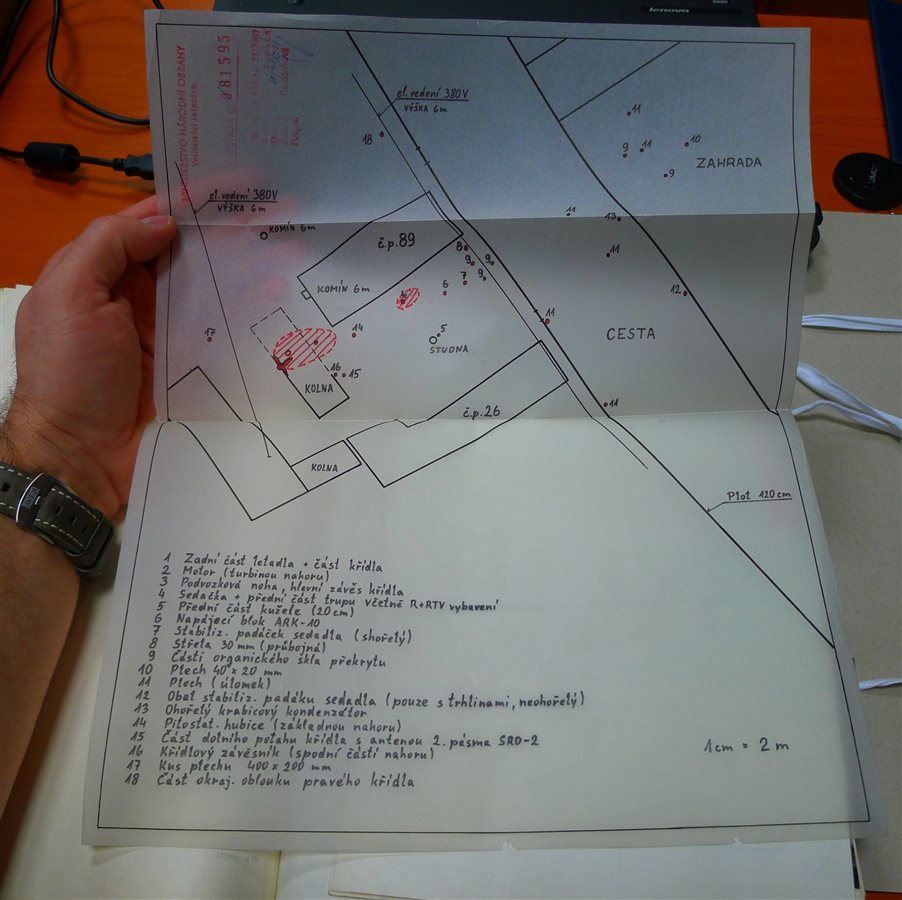 lenovo
MINISTERSTVO NÁRODNÍ OBRANY
081595
el. vedení 380V
VÝŠKA 6m
18
11
9
11
10
ZAHRADA
9
el. vedení 380V
VÝŠKA 6m
KOMÍN 6m
11
13
č.p. 89
8
9
9
11
KOMÍN 6m
7
9
6
12
17
14
5
STUDNA
11
CESTA
16
15
KOLNA
č.p. 26
11
KOLNA
Plot 120cm
1 Zadní část letadla + část křídla
2 Motor (turbinou nahoru)
3 Podvozková noha, hlavní závěs křídla
4 Sedačka + přední část trupu včetně R+RTV vybavení
5 Přední část kužele (20cm)
6 Napájecí blok ARK-10
7 Stabiliz. padáček sedadla (shořelý)
8 Střela 30 mm (průbojná)
9 Části organického skla překrytu
10 Plech 40 × 20 mm
11 Plech (úlomek)
12 Obal stabiliz. padáku sedadla (pouze s trhlinami, neohořelý)
13 Ohořelý krabicový kondenzátor
14 Pitostat. hubice (základnou nahoru)
15 Část dolního potahu křídla s antenou 2. pásma SRO-2
16 Křídlový závěsník (spodní částí nahoru)
17 Kus plechu 400 × 200 mm
18 Část okraj. oblouku pravého křídla
1cm = 2 m